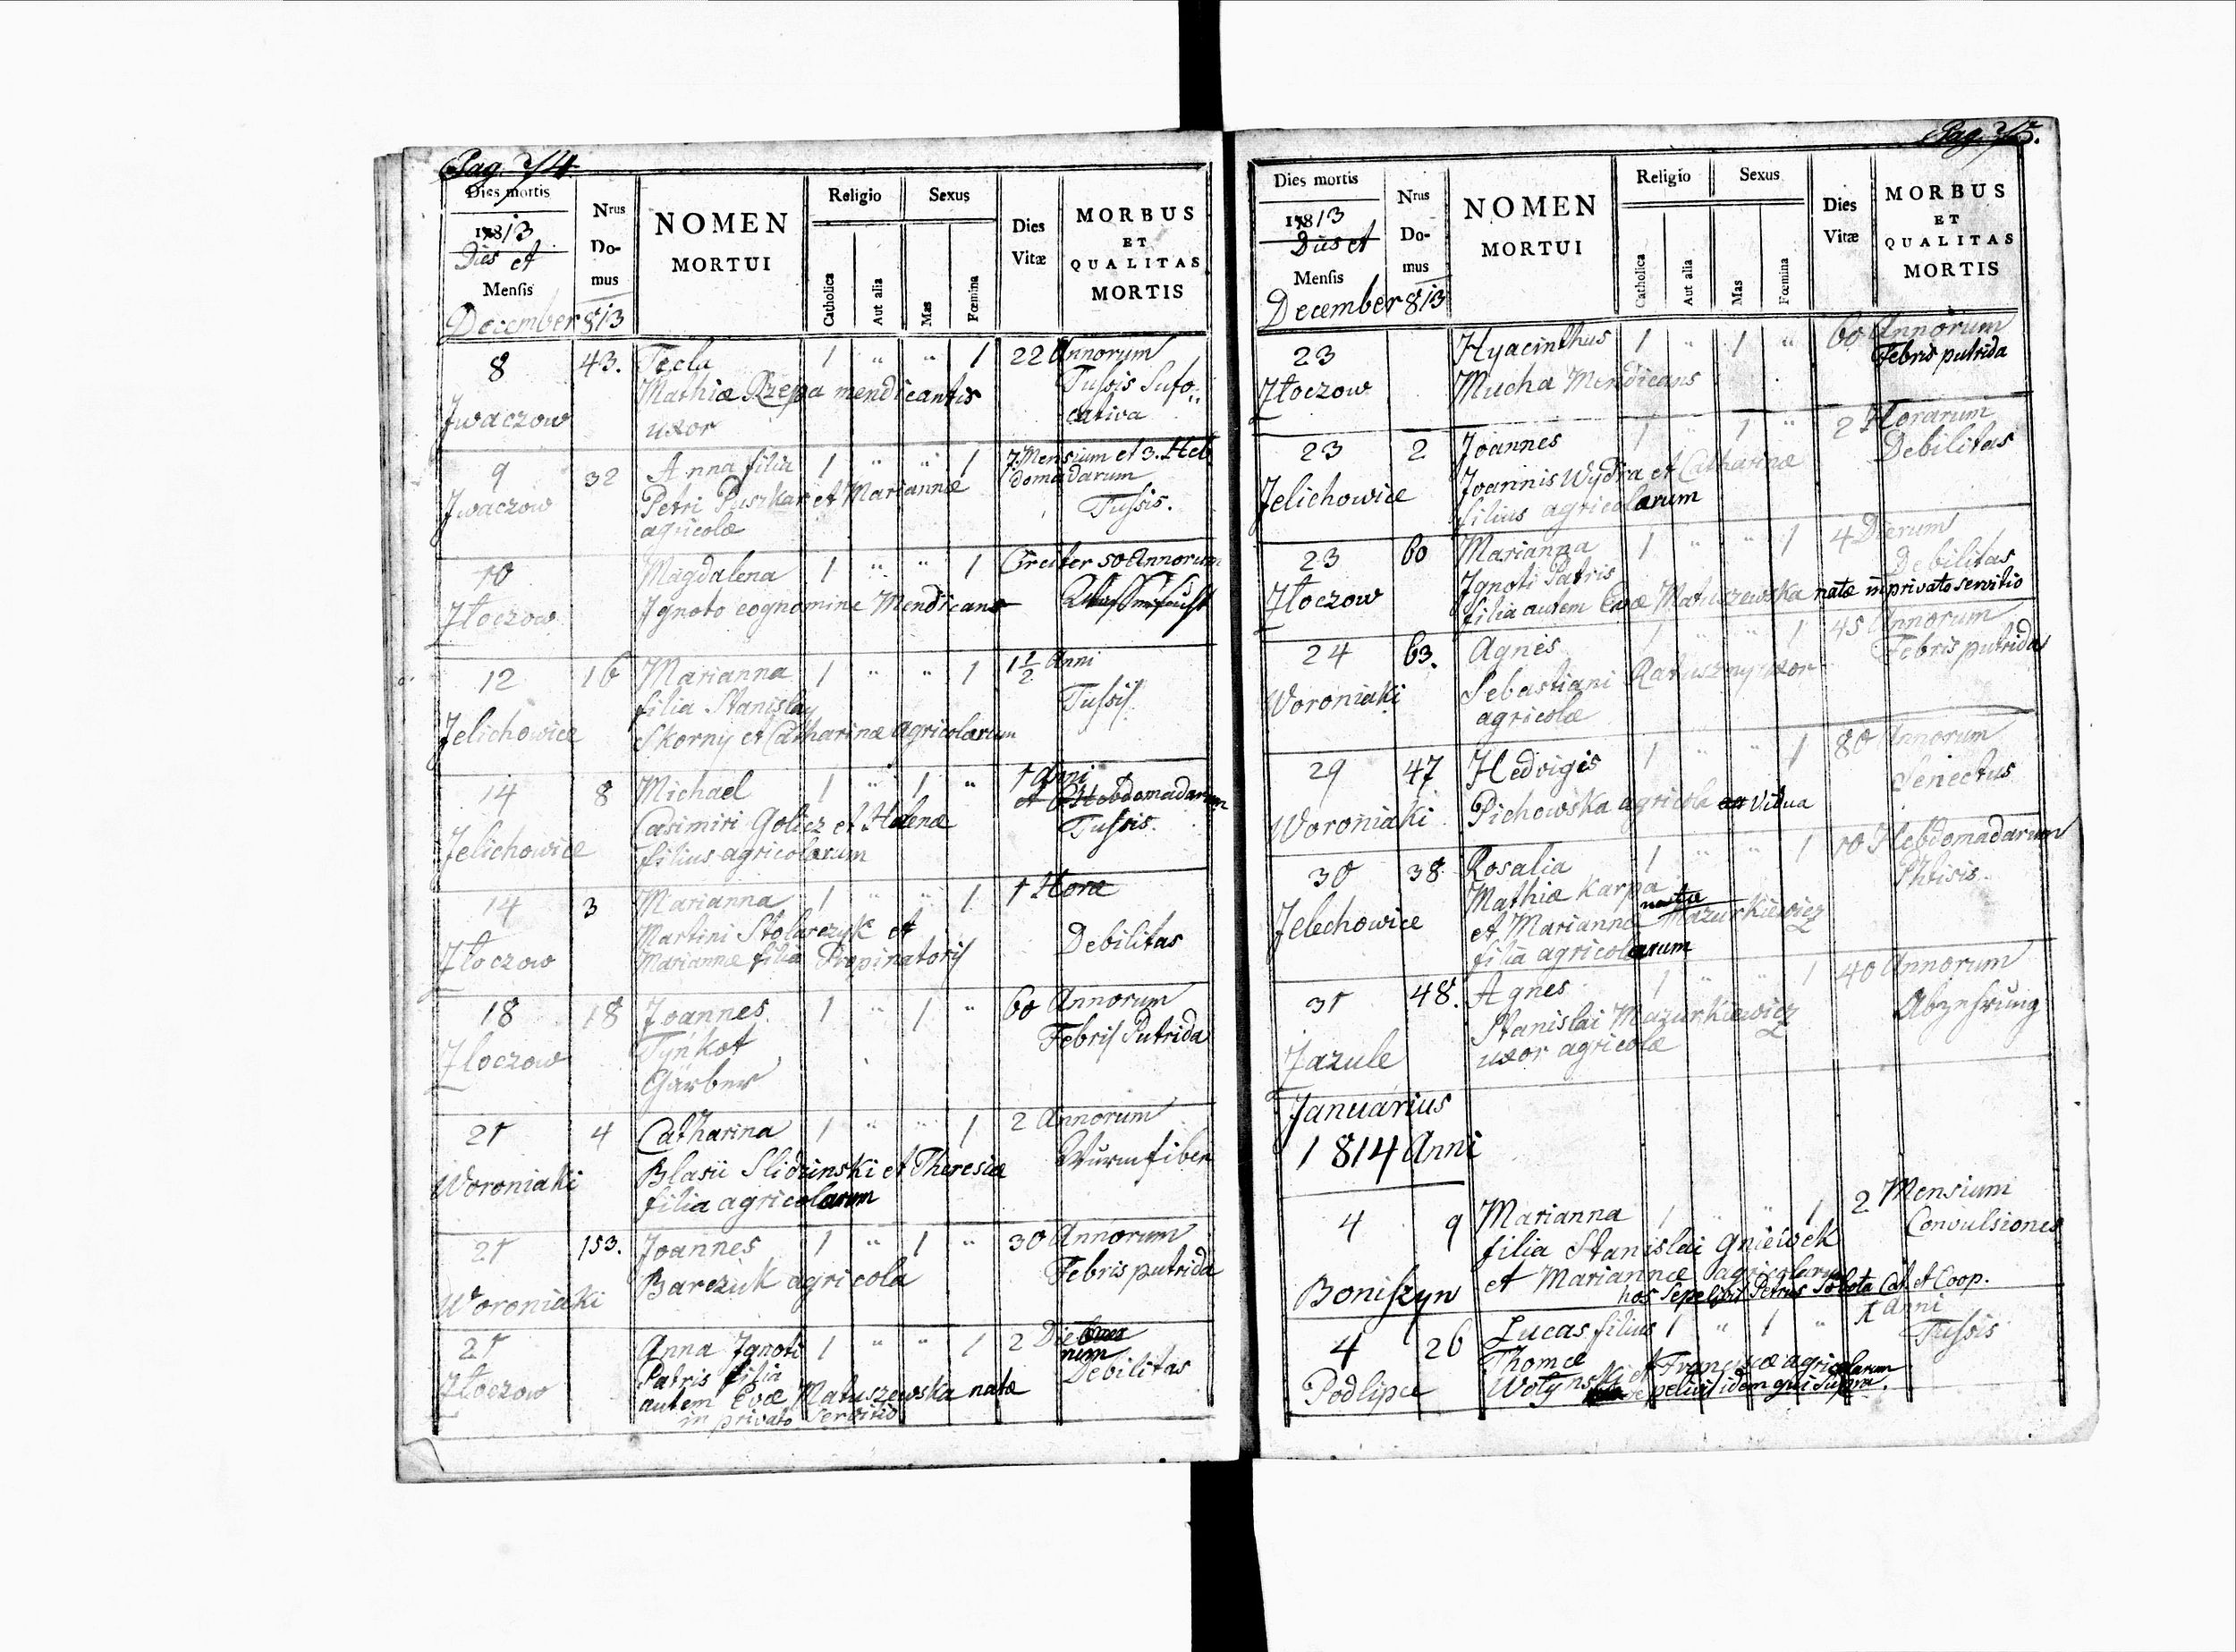 Pag. 214
Dies mortis
1813
Dies et
Mensis
December 813
Nrus Do- mus
NOMEN MORTUI
Religio
Catholica
Aut alia
Sexus
Mas
Fœmina
Dies Vitæ
MORBUS
ET
QUALITAS
MORTIS
8 43. Tecla 1 " " 1 22 Annorum
Mathiæ Rzepa mendicantis Tussis Sufo:
Jwaczow uxor cativa
9 32 Anna filia 1 " " 1 7 Mensium et 3. Heb
domadarum
Jwaczow Petri Puszkar et Mariannæ
agricolæ Tussis.
10 Magdalena 1 " " 1 Circiter 50 Annorum
Złoczow Ignoto cognomine Mendicans
12 16 Marianna 1 " " 1 1 1/2 Anni
filia Stanislay Tussis
Jelichowice Skorny et Catharinæ agricolarum
14 8 Michael 1 " 1 " 1 Anni
et 6 Hebdomadarum
Casimiri Golicz et Helenæ Tussis.
Jelichowice filius agricolarum
14 3 Marianna 1 " " 1 1 Horæ
Martini Stolarczyk et Debilitas
Złoczow Mariannæ filia Propinatoris
18 18 Joannes 1 " 1 " 60 Annorum
Tynkot Febris Putrida
Złoczow Gärber
21 4 Catharina 1 " " 1 2 Annorum
Blasii Slidzinski et Theresiæ Wurmfiber
Woroniaki filia agricolarum
21 153. Joannes 1 " 1 " 30 Annorum
Barczuk agricola Febris putrida
Woroniaki
21 Anna Ignoti 1 " " 1 2 Die
rum
Patris filia Debilitas
Złoczow autem Evæ Matuszewska natæ
in privato Servitio
Pag. 215.
Dies mortis
1813
Dies et
Mensis
December 813
Nrus Do- mus
NOMEN
MORTUI
Religio
Catholica
Aut alia
Sexus
Mas
Fœmina
Dies Vitæ
MORBUS
ET
QUALITAS
MORTIS
23 Hyacinthus 1 " 1 " 60 Annorum
Febris putrida
Złoczow Mucha Mendicans
23 2 Joannes 1 " 1 " 2 Horarum
Joannis Wydra et Catharinæ Debilitas
Jelichowice filius agricolarum
23 60 Marianna 1 " " 1 4 Dierum
Ignoti Patris Debilitas
Złoczow filia autem Evæ Matuszewska natæ in privato servitio
24 63. Agnes 1 " " 1 45 Annorum
Sebastiani Ratuszny uxor Febris putrida
Woroniaki agricolæ
29 47 Hedvigis 1 " " 1 80 Annorum
Pichowska agricola vidua Senectus
Woroniaki
30 38 Rosalia 1 " " 1 10 Hebdomadarum
Mathiæ Karpa Phtisis.
Jelechowice et Mariannæ natæ Mazurkiewicz
filia agricolarum
31 48. Agnes 1 " " 1 40 Annorum
Stanislai Mazurkiewicz Abzehrung
Zazule uxor agricolæ
Januarius
1814 Anni
4 9 Marianna 1 " " 1 2 Mensium
filia Stanislai Gniewek Convulsiones
Boniszyn et Mariannæ agricolarum
hos Sepelivit Petrus Sobota Cat. et Coop.
4 26 Lucas filius 1 " 1 " 1 Anni
Thomæ Tussis
Podlipce Wołynski et Franciscæ agricolarum
sepelivit idem qui Supra.